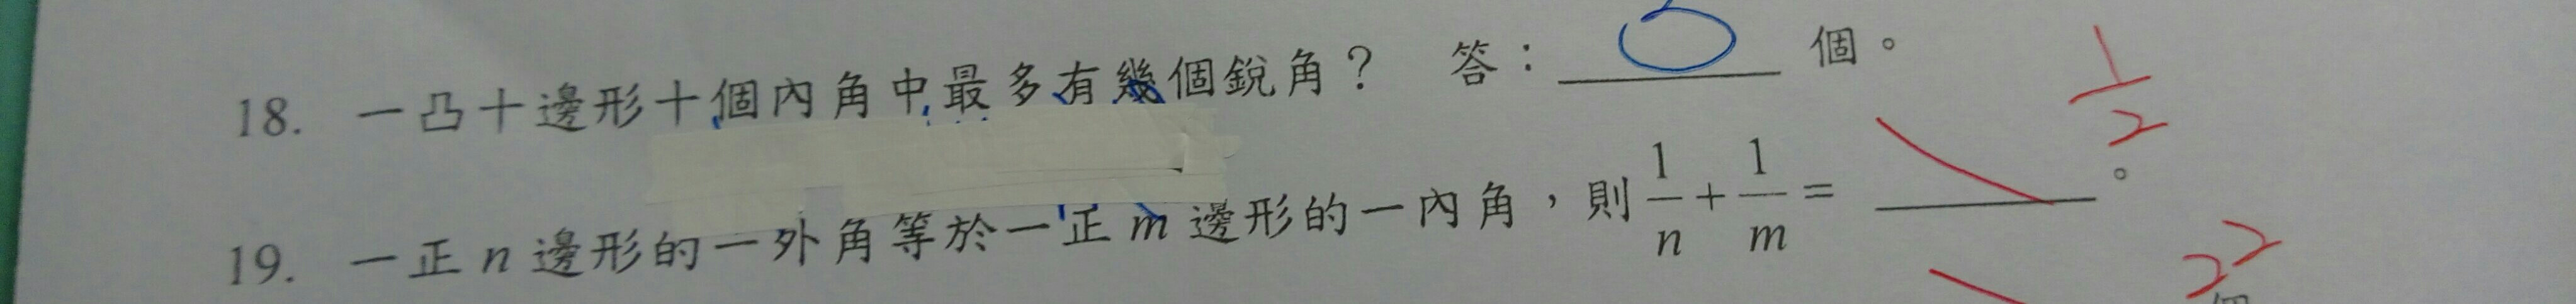 18. 一凸十邊形十個內角中最多有幾個銳角? 答:3 個。
19. 一正 n 邊形的一外角等於一正 m 邊形的一內角,則 1/n + 1/m = 。
1/2